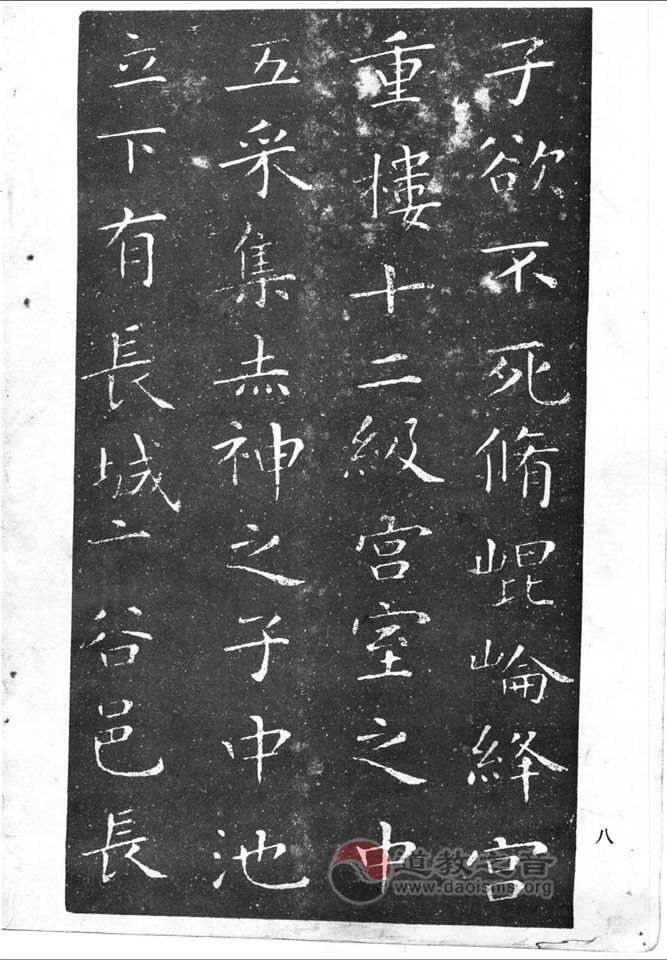 子欲不死脩崐崘絳宮
重樓十二級宮室之中
五采集赤神之子中池
立下有長城玄谷邑長
八
道教之音
www.daoisms.org